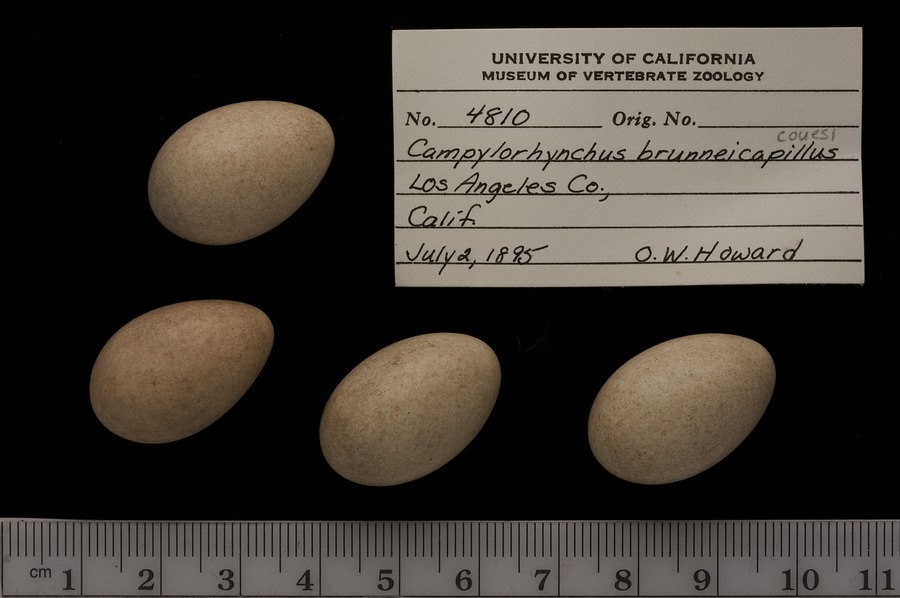 UNIVERSITY OF CALIFORNIA
MUSEUM OF VERTEBRATE ZOOLOGY
No. 4810 Orig. No.
couesi
Campylorhynchus brunneicapillus
Los Angeles Co.,
Calif.
July 2, 1895 O. W. Howard
cm 1 2 3 4 5 6 7 8 9 10 11